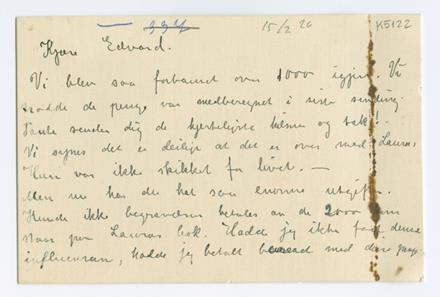 334 15/2 26 K5122
Kjære Edvard.
Vi blev saa forbauset over 1000 igjen. Vi
trodde de penge var medberegnet i siste sending.
Tante sender dig de hjerteligste hilsner og takk!
Vi synes det er deilig at det er over med Lauras
Hun var ikke skikket for livet. —
Men nu har du hat saa enorme utgifter.
Kunde ikke begravelsen betales av de 2000 som
staar paa Lauras bok. Hadde jeg ikke faat denne
influensaen, hadde jeg betalt med disse penge